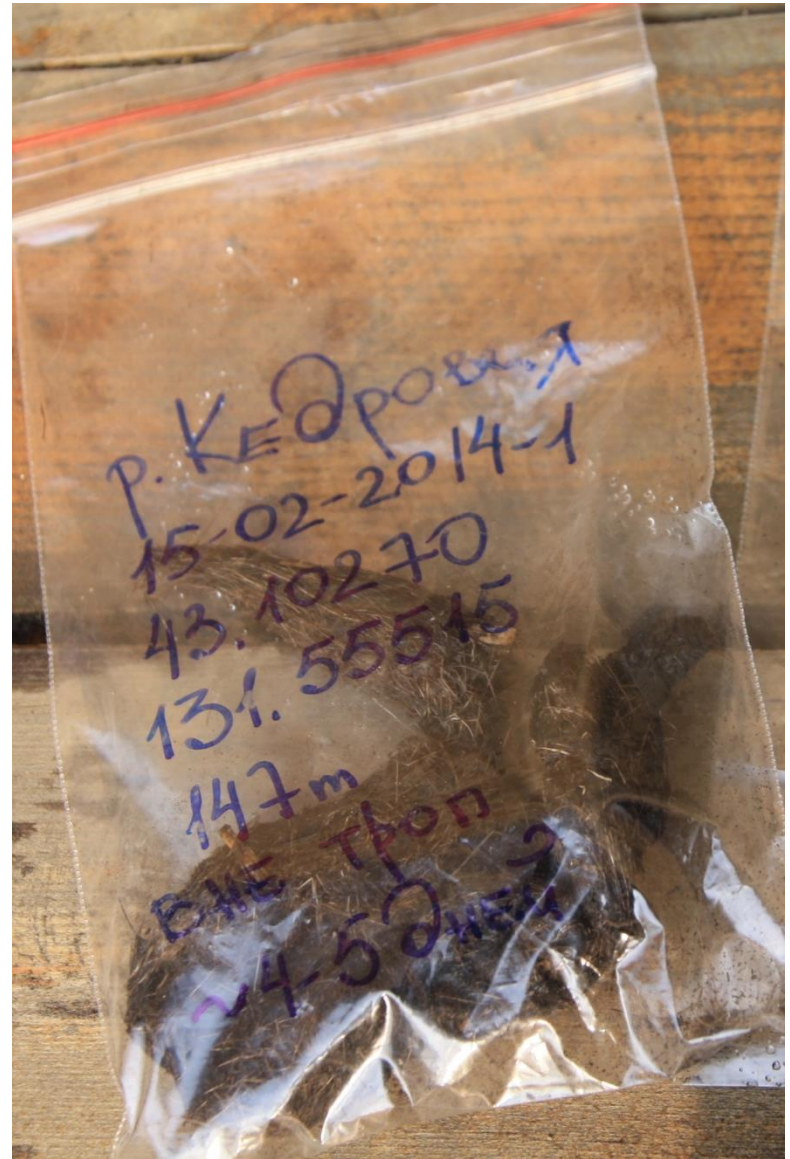 р. Кедровая
15-02-2014-1
43.10270
131.55515
147m
вне троп
~4-5 дней